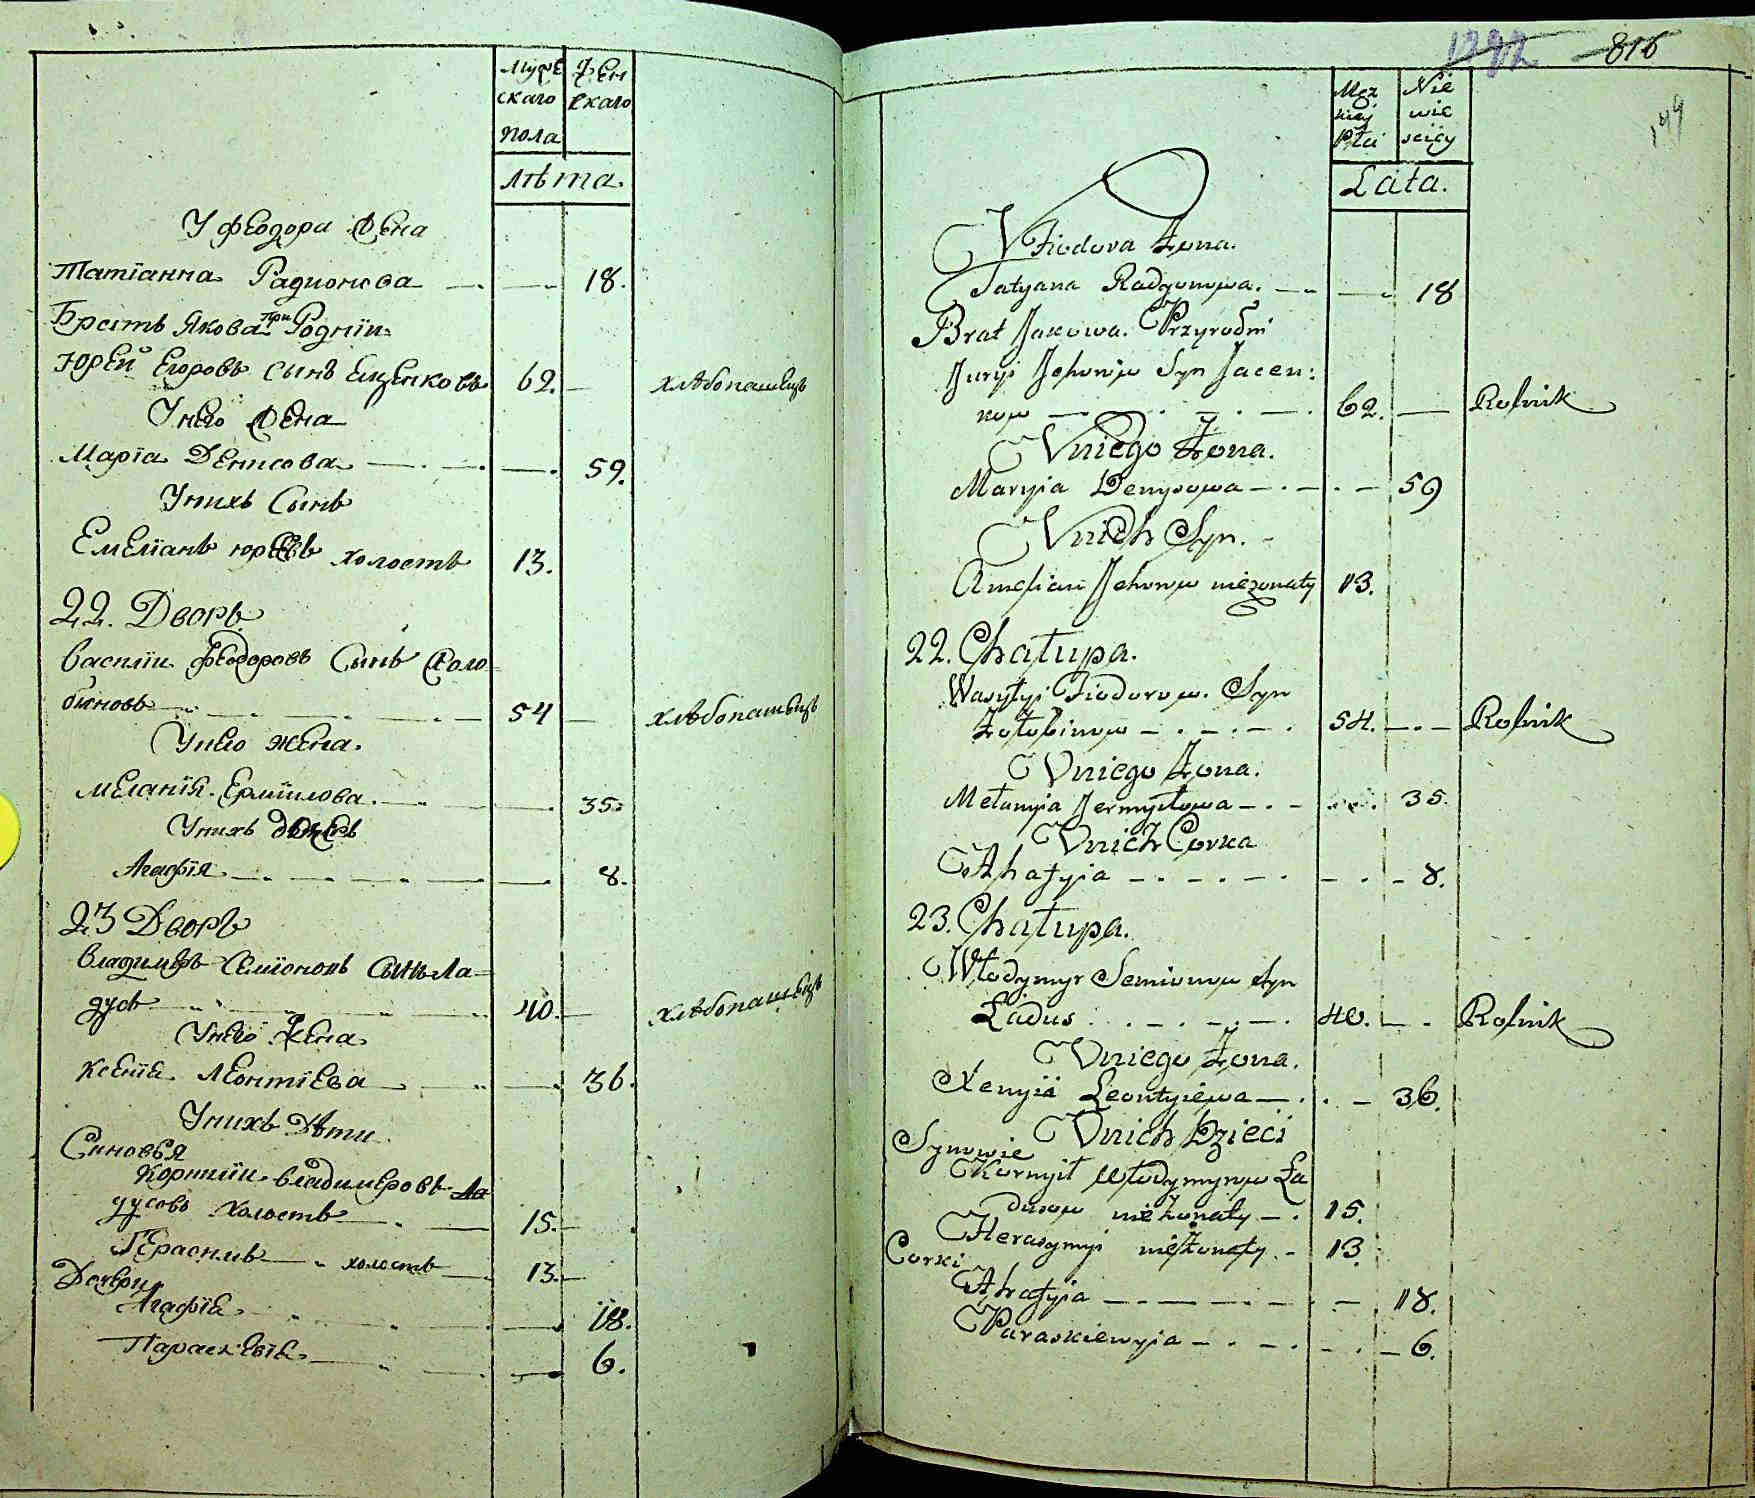 Муже Жен
скаго скаго
пола
лѣта.
У феодора Жена
Татіанна Радионова 18.
Братъ Якова при Родніи
Юрей Егоровъ сынъ Еценковъ 62. хлѣбопашецъ
У него Жена
Маріа Денисова 59.
У нихъ Сынъ
Емеліанъ юрьевъ холостъ 13.
22. Дворъ
Василіи феодоровъ Сынъ Жоло
биновъ 54 хлѣбопашецъ
У него жена.
Меланія Ермилова 35.
У нихъ дочерь
Агафія 8.
23 Дворъ
Владимѣръ Семіоновъ Сынъ Ла
дусь 40. хлѣбопашецъ
У него Жена
Ксенія Леонтіева 36.
У нихъ Дѣти
Синовья
Корниліи владимѣровъ Ла
дусовъ холостъ 15.
Герасимъ холостъ 13.
Дочери
Агафія 18.
Параскевія 6.
1292 816
Męz Nie
kiey wie
Płci scicy
149
Łata.
V Fiodora Żona.
Tatyana Radyonowa. 18
Brat Jakowa. Przyrodni
Juryi Jehorów Syn Jacen:
kow 62. Rolnik
V niego Żona.
Maryia Denysowa 59
V nich Syn.
Amelian Jehorow nieżonaty 13.
22. Chałupa.
Wasylyi Fiodorow. Syn
Żołobinow 54. Rolnik
V niego Żona.
Mełanyia Jermyłowa 35.
V nich Corka
Ahafyia 8.
23. Chałupa.
Włodymyr Semionow Syn
Ładus 40. Rolnik
V niego Żona.
Xenyia Leontyiewa 36.
V nich Dzieci
Synowie
Kornyił Włodymyrow Ła
dusow nieżonaty 15.
Herasymyi nieżonaty 13.
Corki
Ahafyia 18.
Paraskiewyia 6.